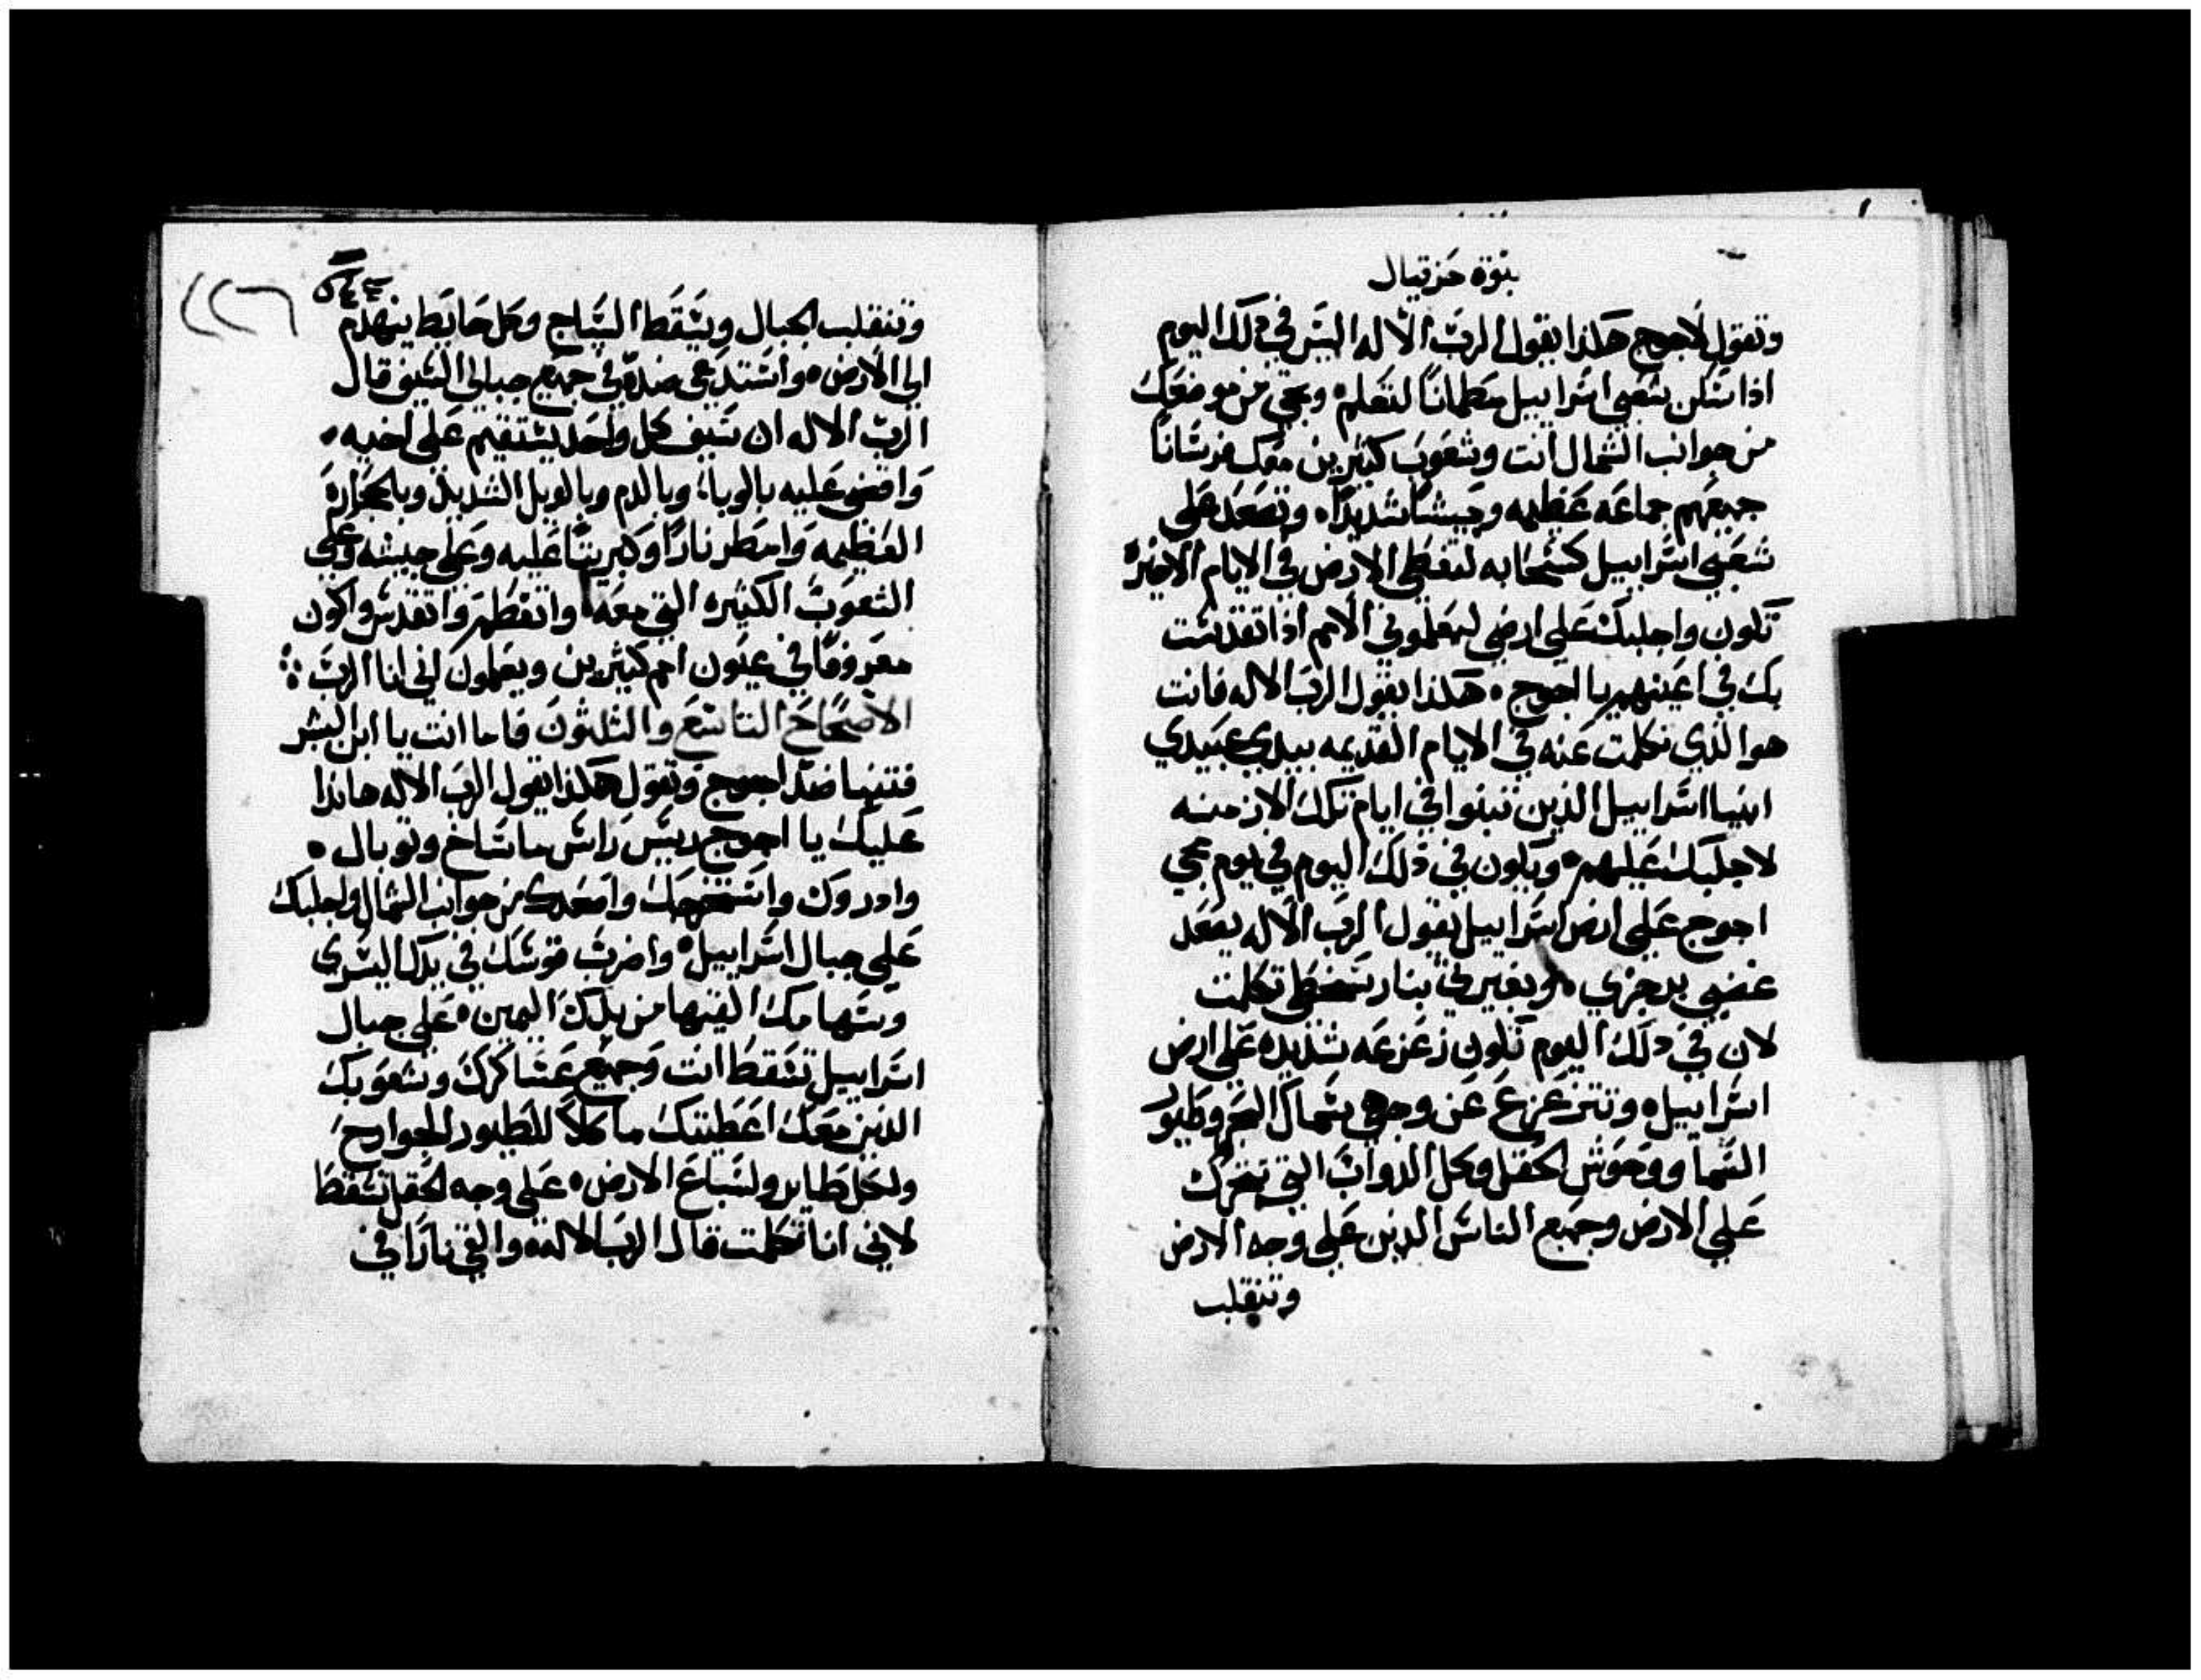 نبوة حزقيال
وتقول لاجوج هكذا يقول الرب الاله اليس في ذلك اليوم
اذا سكن شعبي اسراييل مطمانا لتعلم وتجي من موضعك
من جوانب الشمال انت وشعوب كثيرين معك فرسانا
جميعهم جماعه عظيمه وجيشا شديدا وتصعد علي
شعبي اسراييل كسحابه لتغطي الارض في الايام الاخيره
تكون واجلبك علي ارضي ليعلموني الامم اذا تقدست
بك في اعينهم يا اجوج هكذا يقول الرب الاله فانت
هو الذي تكلمت عنه في الايام القديمه بيدي عبيدي
انبيا اسراييل الذين تنبوا في ايام تلك الازمنه
لاجلبك عليهم ويكون في ذلك اليوم في يوم مجي
اجوج علي ارض اسراييل يقول الرب الاله يصعد
غضبي برجزي وبغيرتي بنار سخطي تكلمت
لان في ذلك اليوم تكون زعزعه شديده علي ارض
اسراييل وتتزعزع عن وجهي سماك البحر وطيور
السما ووحوش الحقل وكل الدواب التي تتحرك
علي الارض وجميع الناس الدين علي وجه الارض
وتنقلب
٢٢٦
وتنقلب الجبال ويسقط السياج وكل حايط ينهدم
الي الارض واستدعي ضده في جميع جبالي السيف قال
الرب الاله ان سيف كل واحد يستقيم علي اخيه
واقضي عليه بالوباء وبالدم وبالوبل الشديد وبالحجاره
العظيمه وامطر نارا وكبريتا عليه وعلي جيشه وعلي
الشعوب الكثيره التي معه واتعظم واتقدس واكون
معروفا في عيون امم كثيرين ويعلمون اني انا الرب
الاصحاح التاسع والثلثون فاما انت يا ابن البشر
فتنبا ضد اجوج وتقول هكذا يقول الرب الاله هانذا
عليك يا اجوج رييس راس ماشاخ وتوبال
وادروك واستخرجك واصعدك من جوانب الشمال واجلبك
علي جبال اسراييل واضرب قوسك في يدك اليسري
وسهامك القيها من يدك اليمين علي جبال
اسراييل تسقط انت وجميع عساكرك وشعوبك
الذين معك اعطيتك ماكلا للطيور للجوارح
ولكل طاير ولسباع الارض علي وجه الحقل تسقط
لاني انا تكلمت قال الرب الاله والقي نارا في